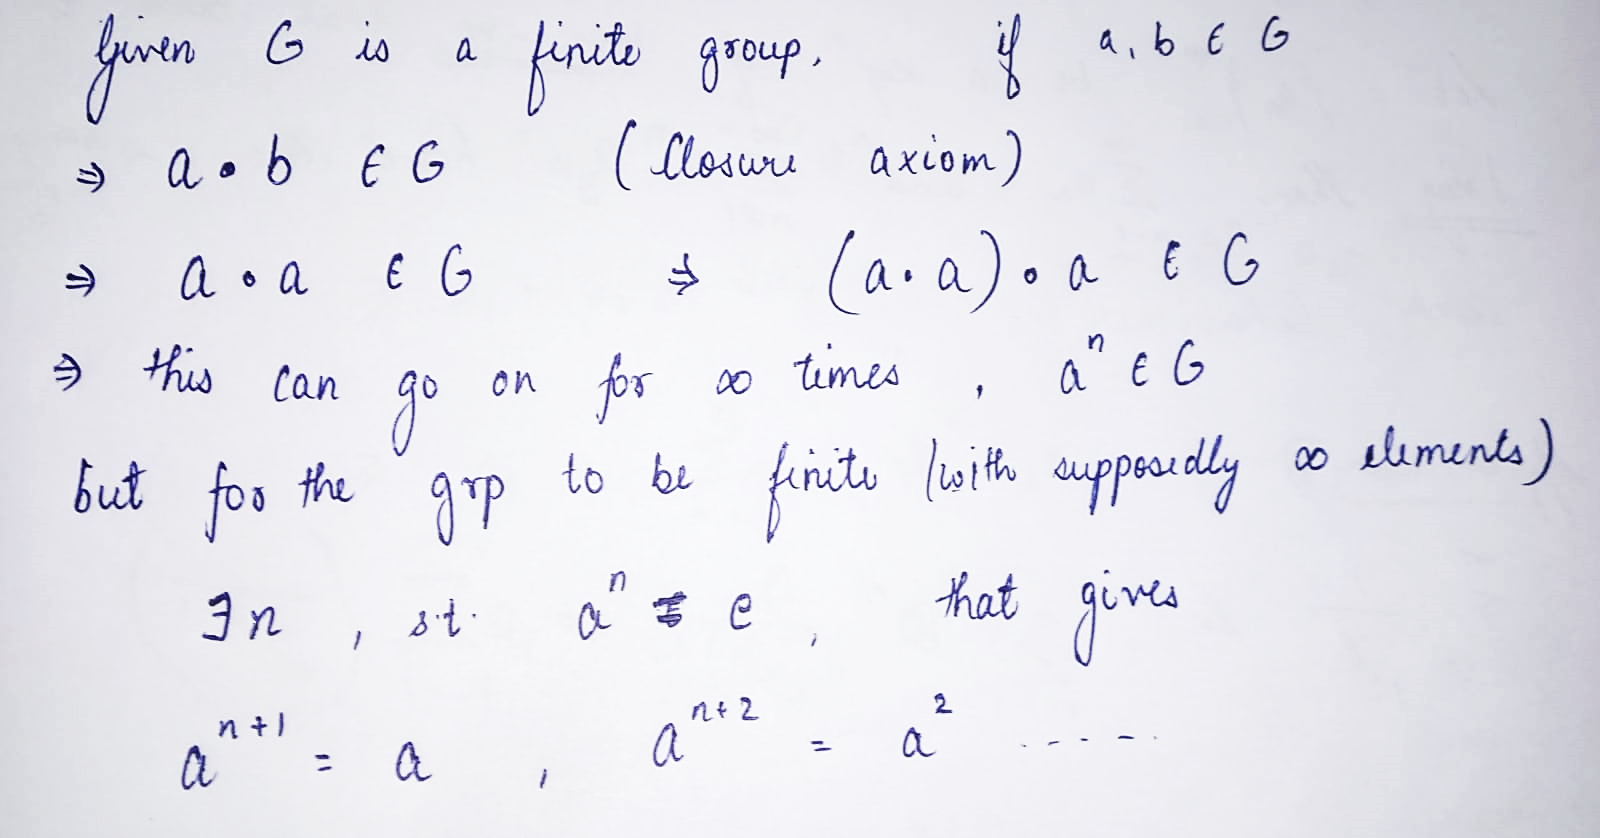 Given G is a finite group, if a, b ∈ G
⇒ a • b ∈ G (Closure axiom)
⇒ a • a ∈ G ⇒ (a • a) • a ∈ G
⇒ this can go on for ∞ times , aⁿ ∈ G
but for the grp to be finite (with supposedly ∞ elements)
∃ n , s.t. aⁿ = e , that gives
aⁿ⁺¹ = a , aⁿ⁺² = a² ......